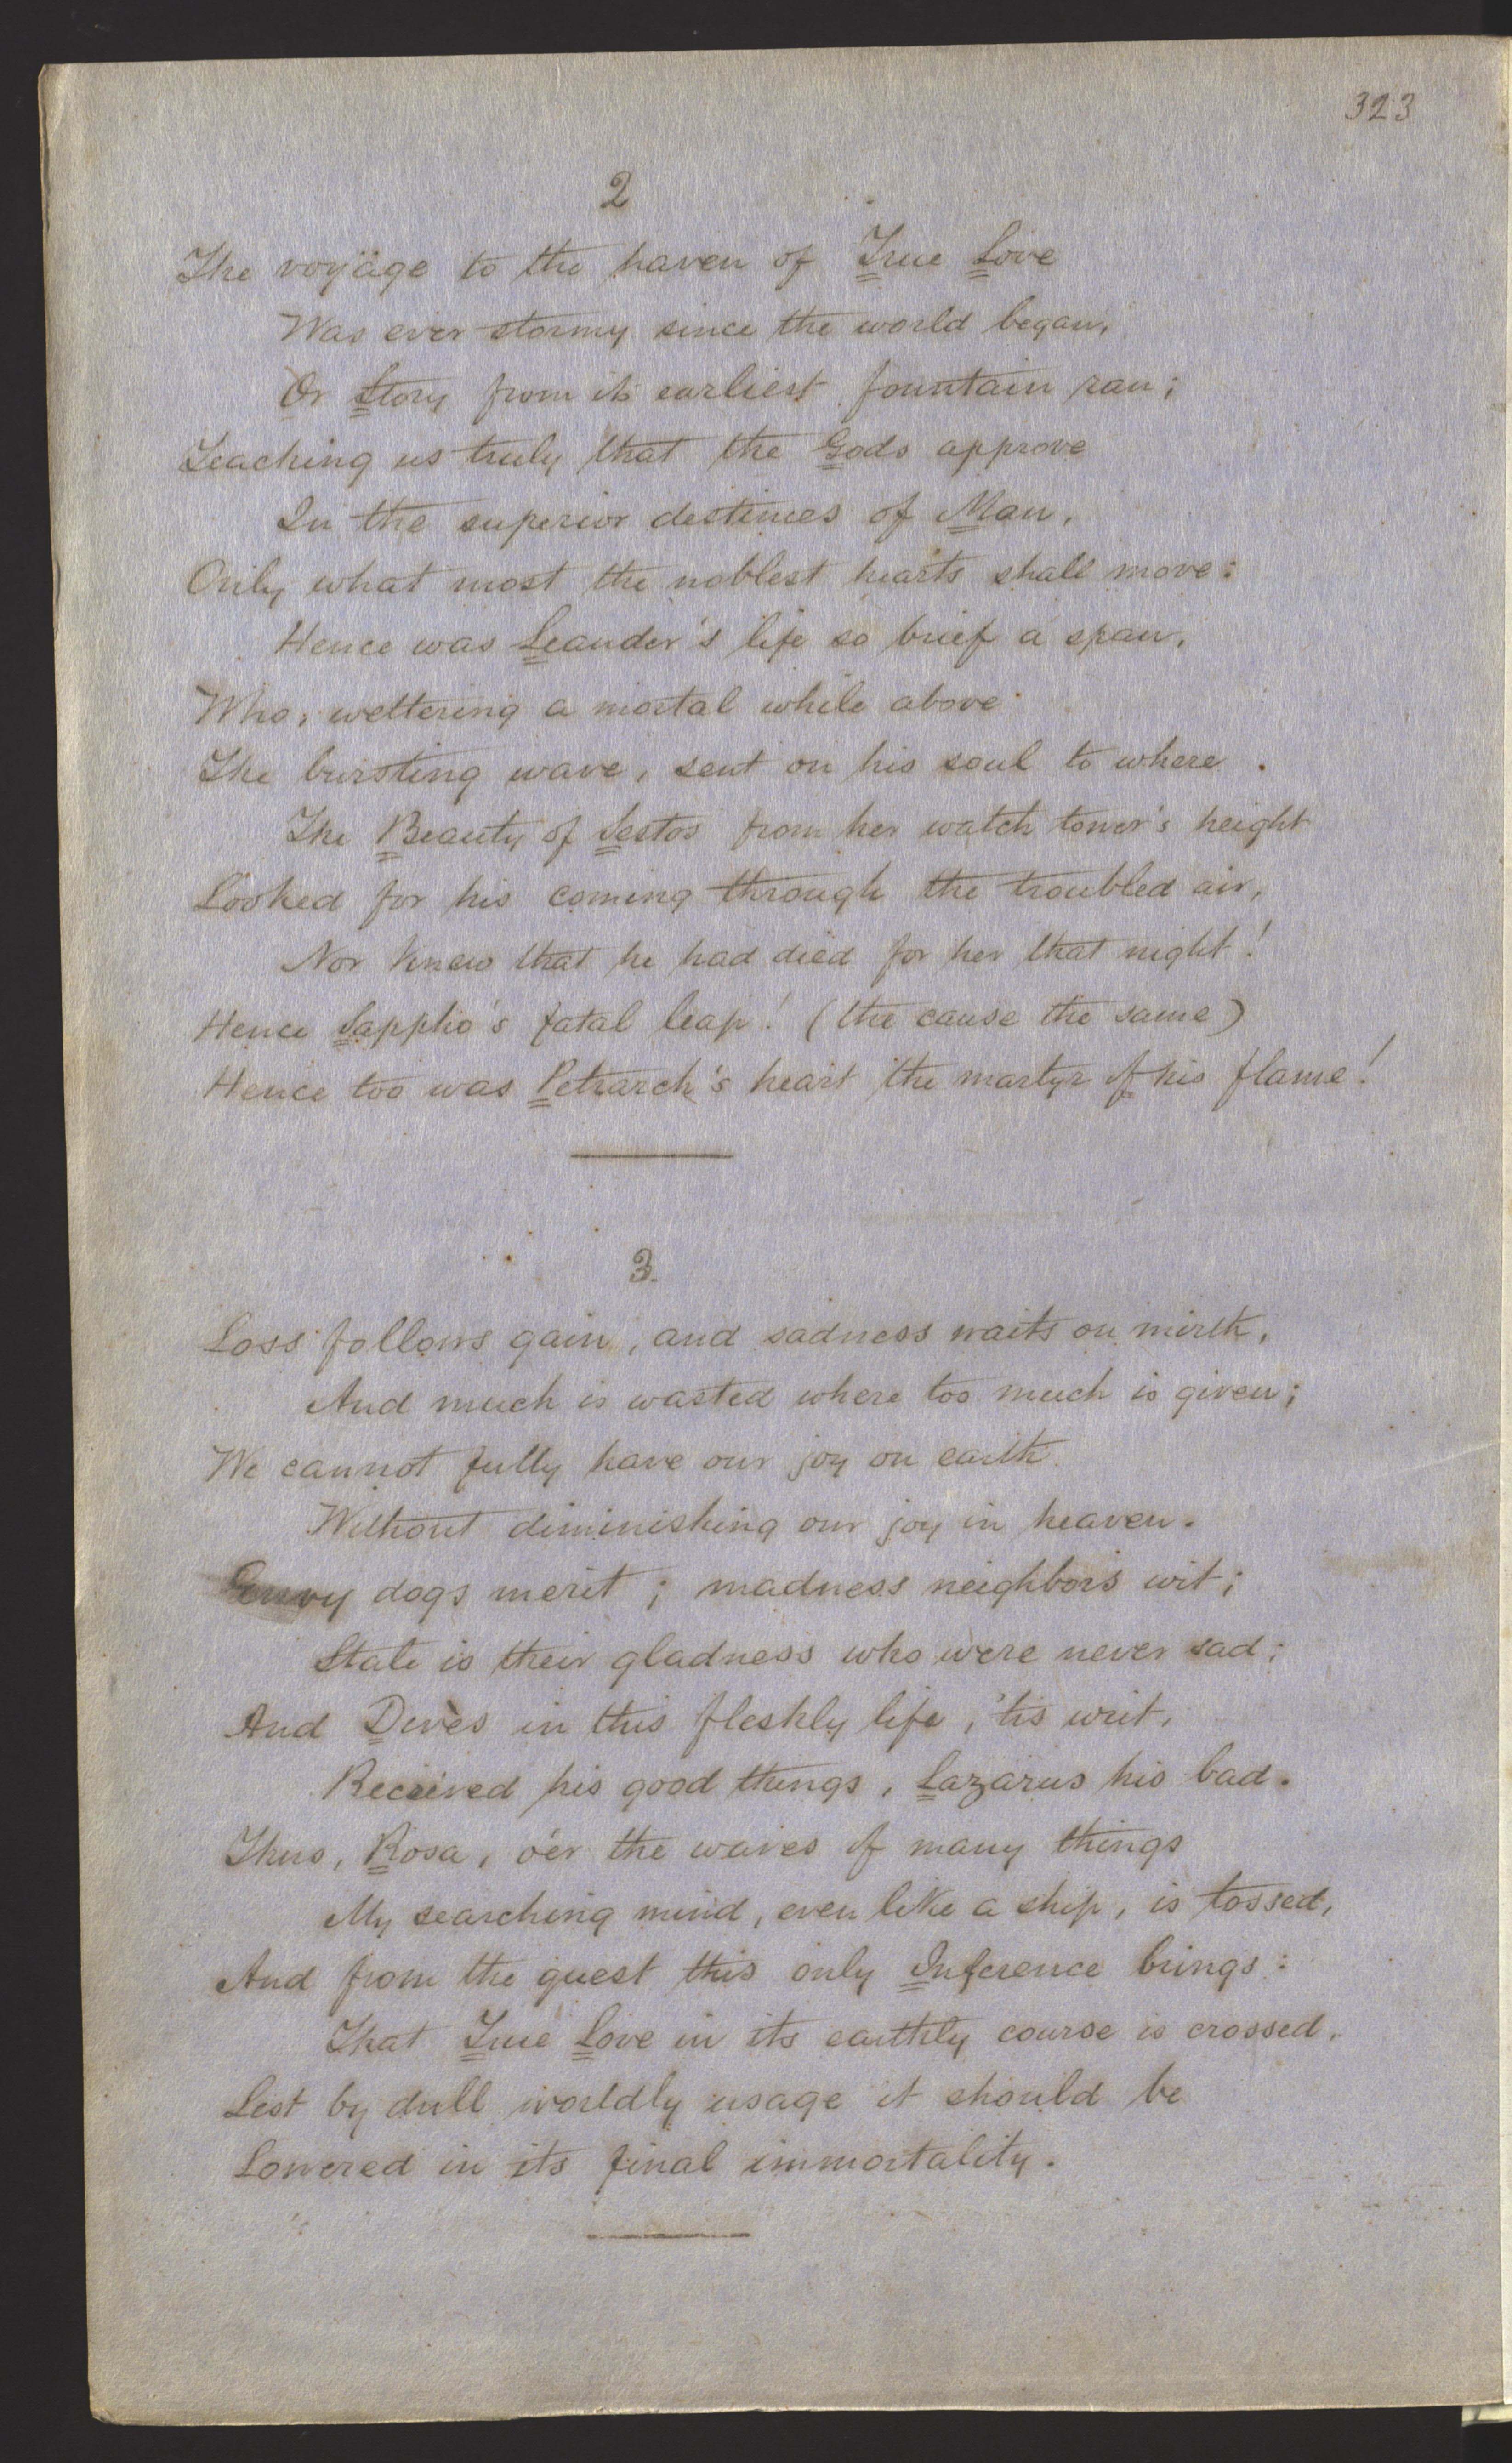 323
2
The voyäge to the haven of True Love
Was ever stormy since the world began,
Or Story from its earliest fountain ran;
Teaching us truly that the Gods approve
In the superior destinies of Man,
Only what most the noblest hearts shall move:
Hence was Leander's life so brief a span,
Who, weltering a mortal while above
The bursting wave, sent on his soul to where
The Beauty of Sestos from her watch tower's height
Looked for his coming through the troubled air,
Nor knew that he had died for her that night!
Hence Sappho's fatal leap! (the cause the same)
Hence too was Petrarch's heart the martyr of his flame!
3.
Loss follows gain, and sadness waits on mirth,
And much is wasted where too much is given;
We cannot fully have our joy on earth
Without diminishing our joy in heaven.
Envy dogs merit; madness neighbors wit;
Stale is their gladness who were never sad;
And Divès in this fleshly life, 'tis writ,
Received his good things, Lazarus his bad.
Thus, Rosa, o'er the waves of many things
My searching mind, even like a ship, is tossed,
And from the quest this only Inference brings:
That True Love in its earthly course is crossed,
Lest by dull worldly usage it should be
Lowered in its final immortality.